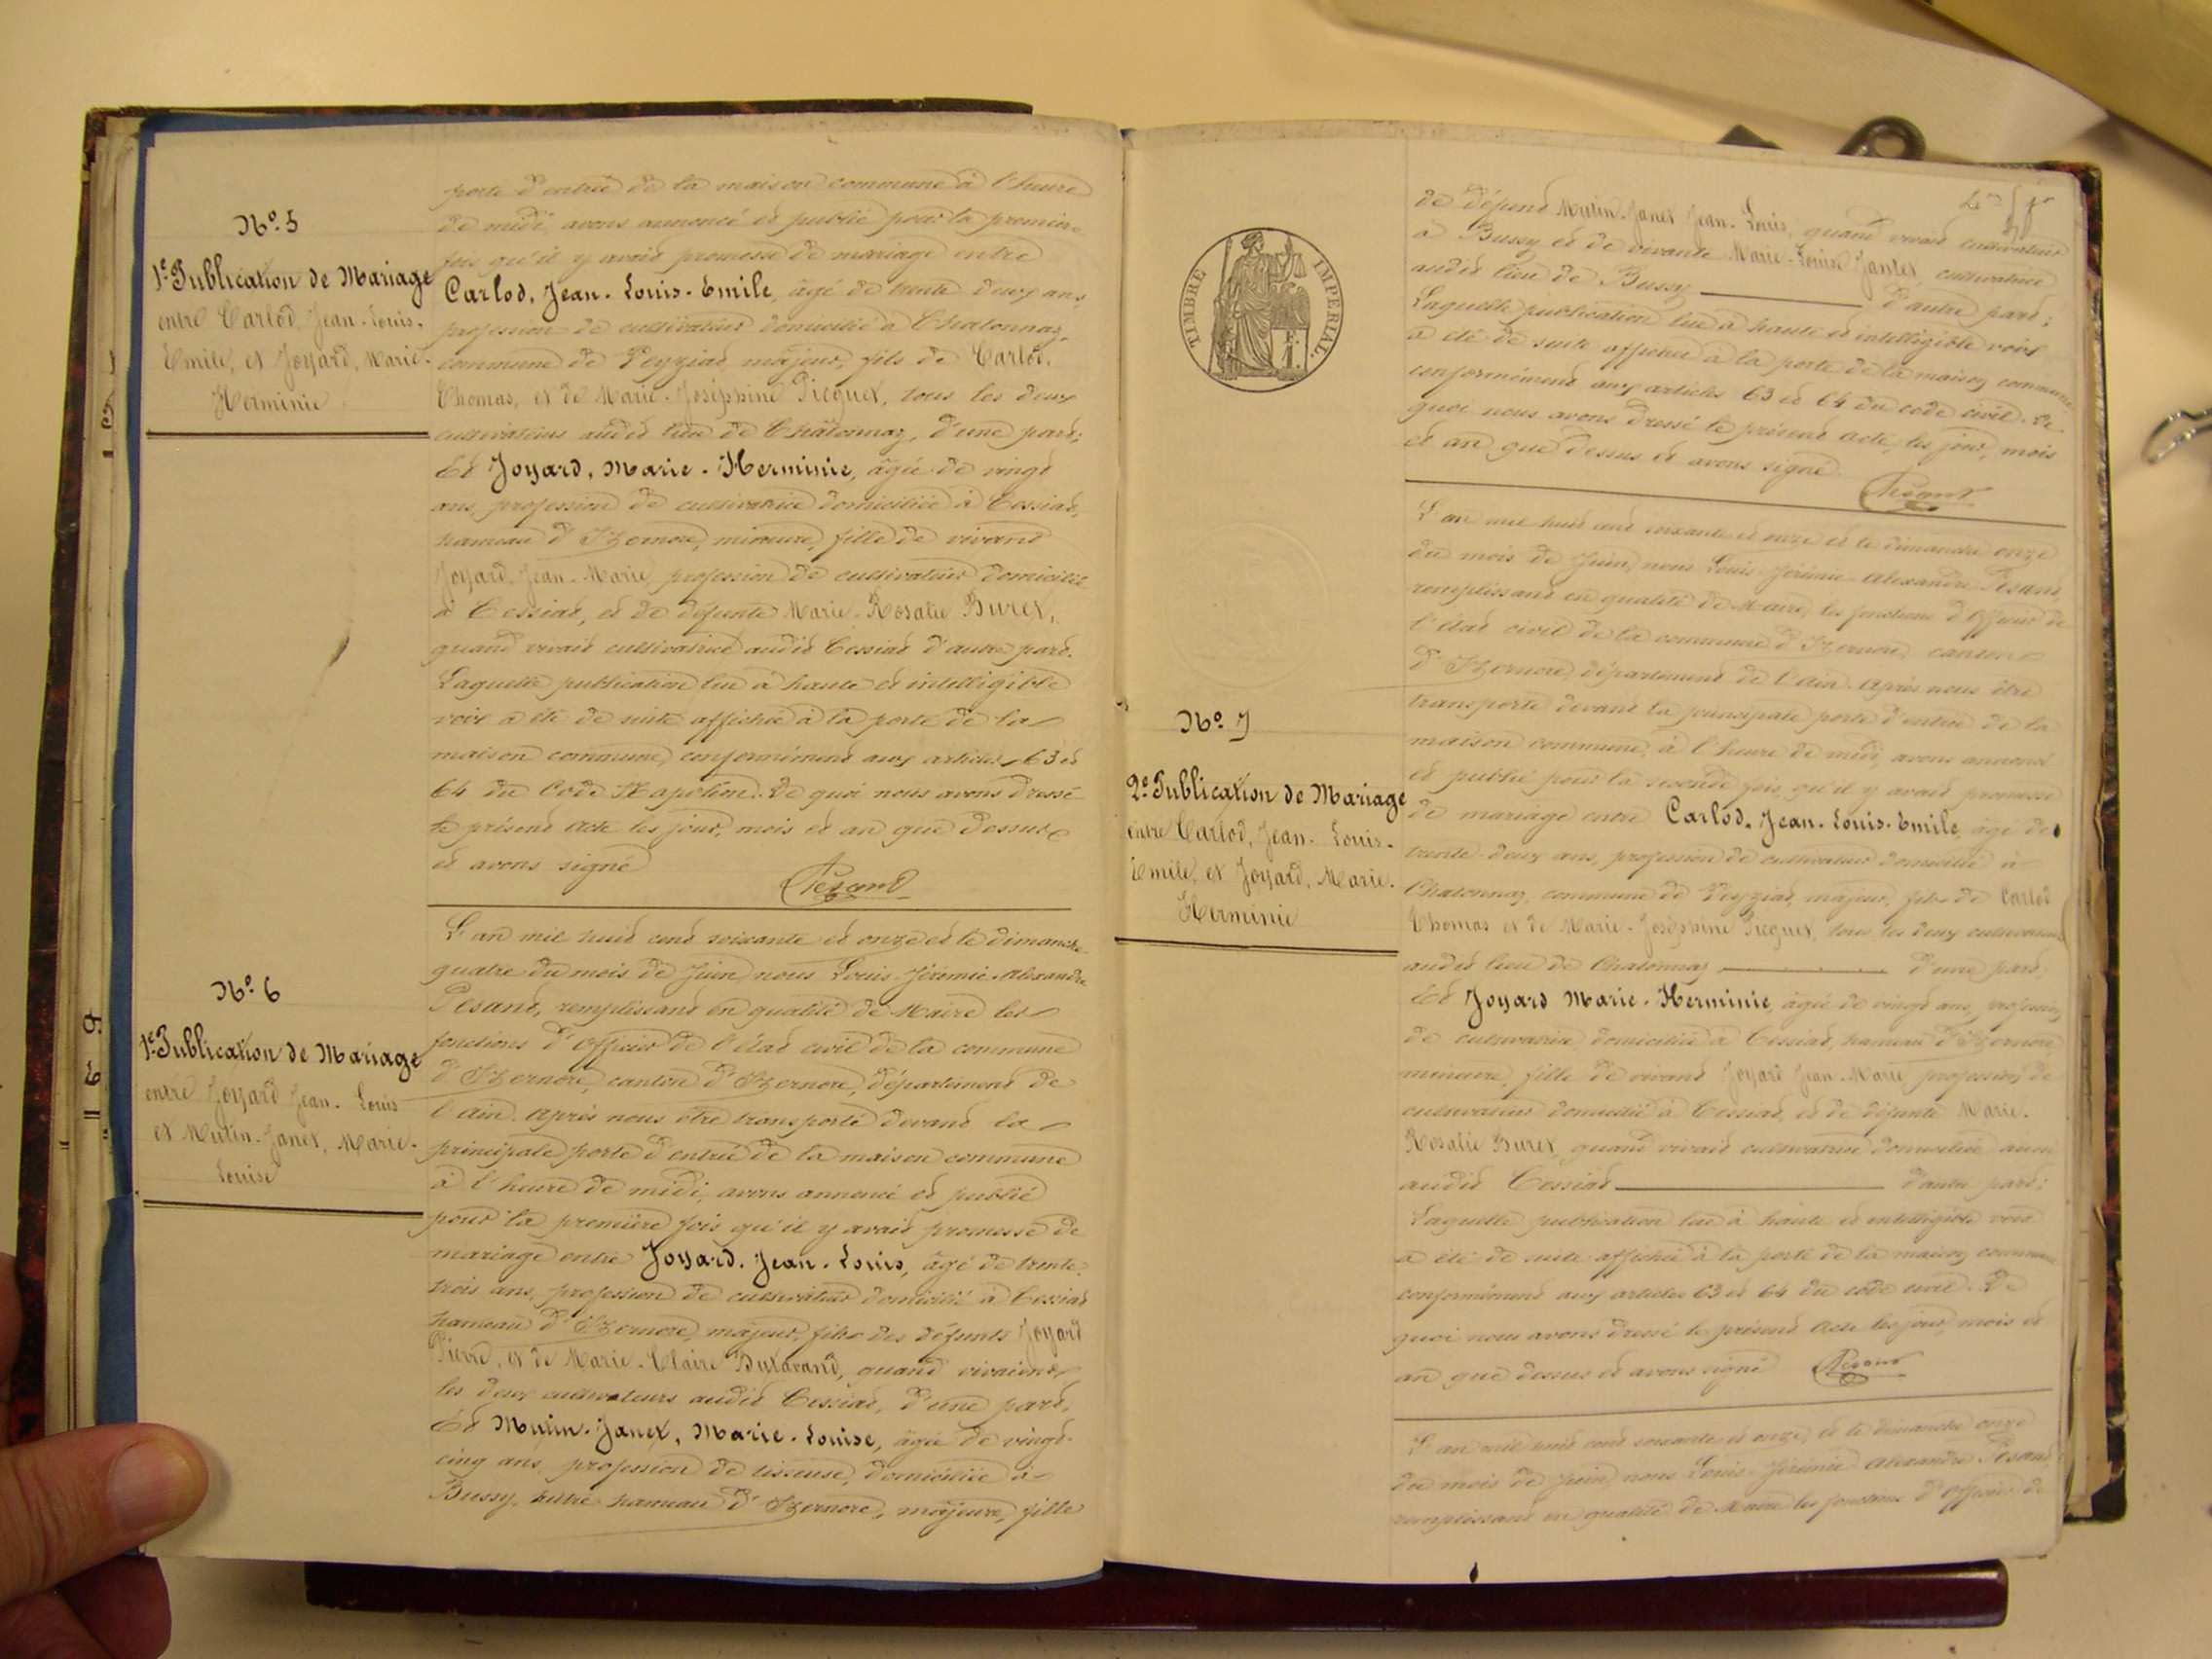 porte d'entrée de la maison commune à l'heure
de midi, avons annoncé et publié pour la première
fois qu'il y avait promesse de mariage entre
Carlod, Jean-Louis-Emile, âgé de trente deux ans,
profession de cultivateur domicilié à Chatonnaz,
commune de Veyziat, majeur, fils de Carlod,
Thomas, et de Marie-Joséphine Picquet, tous les deux
cultivateurs audit lieu de Châtonnaz, d'une part;
Et Joyard, Marie-Herminie, âgée de vingt
ans, profession de cultivatrice domiciliée à Cessiat,
hameau d'Izernore, mineure, fille de vivant
Joyard, Jean-Marie, profession de cultivateur domicilié
à Cessiat, et de défunte Marie-Rosalie Buret,
quand vivait cultivatrice audit Cessiat d'autre part.
Laquelle publication lue à haute et intelligible
voix a été de suite affichée à la porte de la
maison commune, conformément aux articles 63 et
64 du Code Napoléon. De quoi nous avons dressé
le présent acte les jour, mois et an que dessus
et avons signé
Pesant
L'an mil huit cent soixante et onze et le dimanche
quatre du mois de Juin, nous Louis-Jérémie-Alexandre
Pesant, remplissant en qualité de Maire les
fonctions d'Officier de l'état civil de la commune
d'Izernore, canton d'Izernore, département de
l'Ain. Après nous être transporté devant la
principale porte d'entrée de la maison commune
à l'heure de midi, avons annoncé et publié
pour la première fois qu'il y avait promesse de
mariage entre Joyard, Jean-Louis, âgé de trente
trois ans, profession de cultivateur domicilié à Cessiat
hameau d'Izernore, majeur, fils des défunts Joyard
Pierre, et de Marie-Claire Dutarand, quand vivaient
les deux cultivateurs audit Cessiat, d'une part,
Et Mutin-Janet, Marie-Louise, âgée de vingt-
cinq ans, profession de tisseuse, domiciliée à
Bussy, hameau d'Izernore, majeure, fille
No. 5
1e Publication de Mariage
entre Carlod, Jean-Louis-
Emile, et Joyard, Marie-
Herminie
No. 6
1e Publication de Mariage
entre Joyard Jean-Louis
et Mutin-Janet, Marie-
Louise
TIMBRE IMPERIAL.
F.
1.
de défunt Mutin-Janet Jean-Louis, quand vivait cultivateur
à Bussy et de vivante Marie-Louise Jantet, cultivatrice
audit lieu de Bussy d'autre part;
Laquelle publication lue à haute et intelligible voix
a été de suite affichée à la porte de la maison commune
conformément aux articles 63 et 64 du code civil. De
quoi nous avons dressé le présent acte, les jour, mois
et an que dessus et avons signé.
Pesant
L'an mil huit cent soixante et onze et le dimanche onze
du mois de Juin, nous Louis-Jérémie-Alexandre Pesant
remplissant en qualité de Maire, les fonctions d'Officier de
l'état civil de la commune d'Izernore, canton
d'Izernore, département de l'Ain. Après nous être
transporté devant la principale porte d'entrée de la
maison commune, à l'heure de midi, avons annoncé
et publié pour la seconde fois, qu'il y avait promesse
de mariage entre Carlod, Jean-Louis-Emile, âgé de
trente-deux ans, profession de cultivateur domicilié à
Chatonnaz, commune de Veyziat, majeur, fils de Carlod
Thomas et de Marie-Joséphine Picquet, tous les deux cultivateurs
audit lieu de Chatonnaz d'une part,
Et Joyard Marie-Herminie, âgée de vingt ans, profession
de cultivatrice, domiciliée à Cessiat, hameau d'Izernore,
mineure, fille de vivant Joyard Jean-Marie, profession de
cultivateur domicilié à Cessiat, et de défunte Marie-
Rosalie Buret, quand vivait cultivatrice domiciliée
audit Cessiat d'autre part;
Laquelle publication lue à haute et intelligible voix
a été de suite affichée à la porte de la maison commune
conformément aux articles 63 et 64 du code civil. De
quoi nous avons dressé le présent acte les jour, mois et
an que dessus et avons signé Pesant
L'an mil huit cent soixante et onze, et le dimanche onze
du mois de juin, nous Louis-Jérémie Alexandre Pesant,
remplissant en qualité de Maire les fonctions d'Officier de
No. 7
2e Publication de Mariage
entre Carlod, Jean-Louis-
Emile, et Joyard, Marie-
Herminie